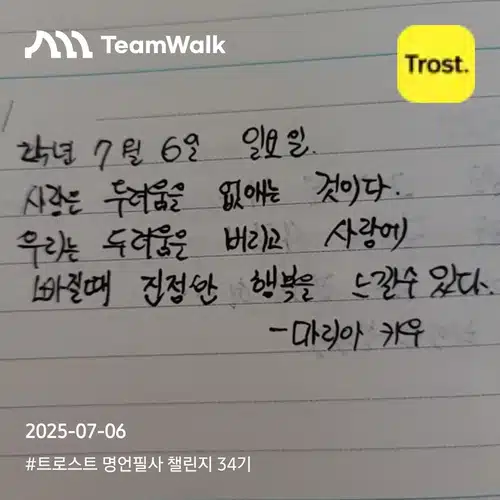 TeamWalk
Trost.
작년 7월 6일 일요일.
사랑은 두려움을 없애는 것이다.
우리는 두려움은 버리고 사랑에
빠질때 진정한 행복을 느낄수 있다.
-마리아 카우
2025-07-06
#트로스트 명언필사 챌린지 34기